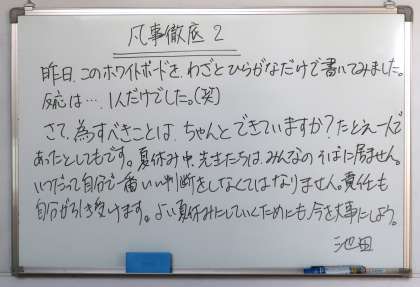 凡事徹底 2
昨日、このホワイトボードを、わざとひらがなだけで書いてみました。
反応は…、1人だけでした。(笑)
さて、為すべきことは、ちゃんとできていますか？たとえ一人で
あったとしてもです。夏休み中、先生たちは、みんなのそばに居ません。
いつだって自分で一番いい判断をしなくてはなりません。責任も
自分が引き受けます。よい夏休みにしていくためにも、今を大事にしよう。
池田